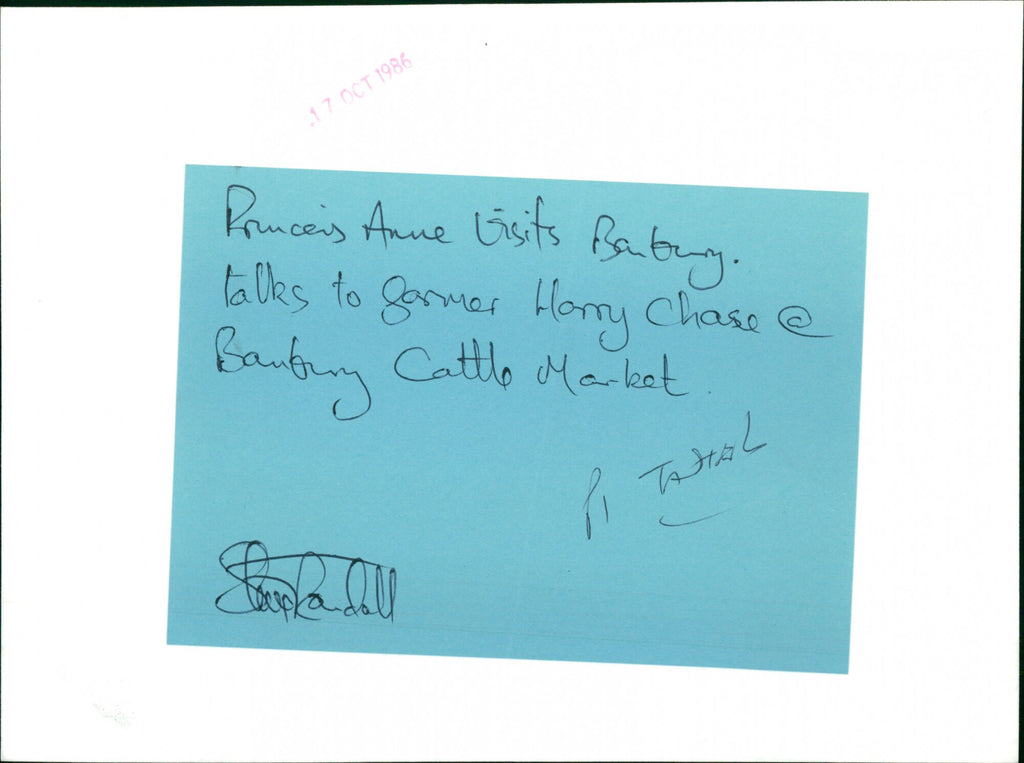 17 OCT 1986
Princess Anne Visits Banbury.
talks to farmer Harry Chase @
Banbury Cattle Market.
P1
Randall